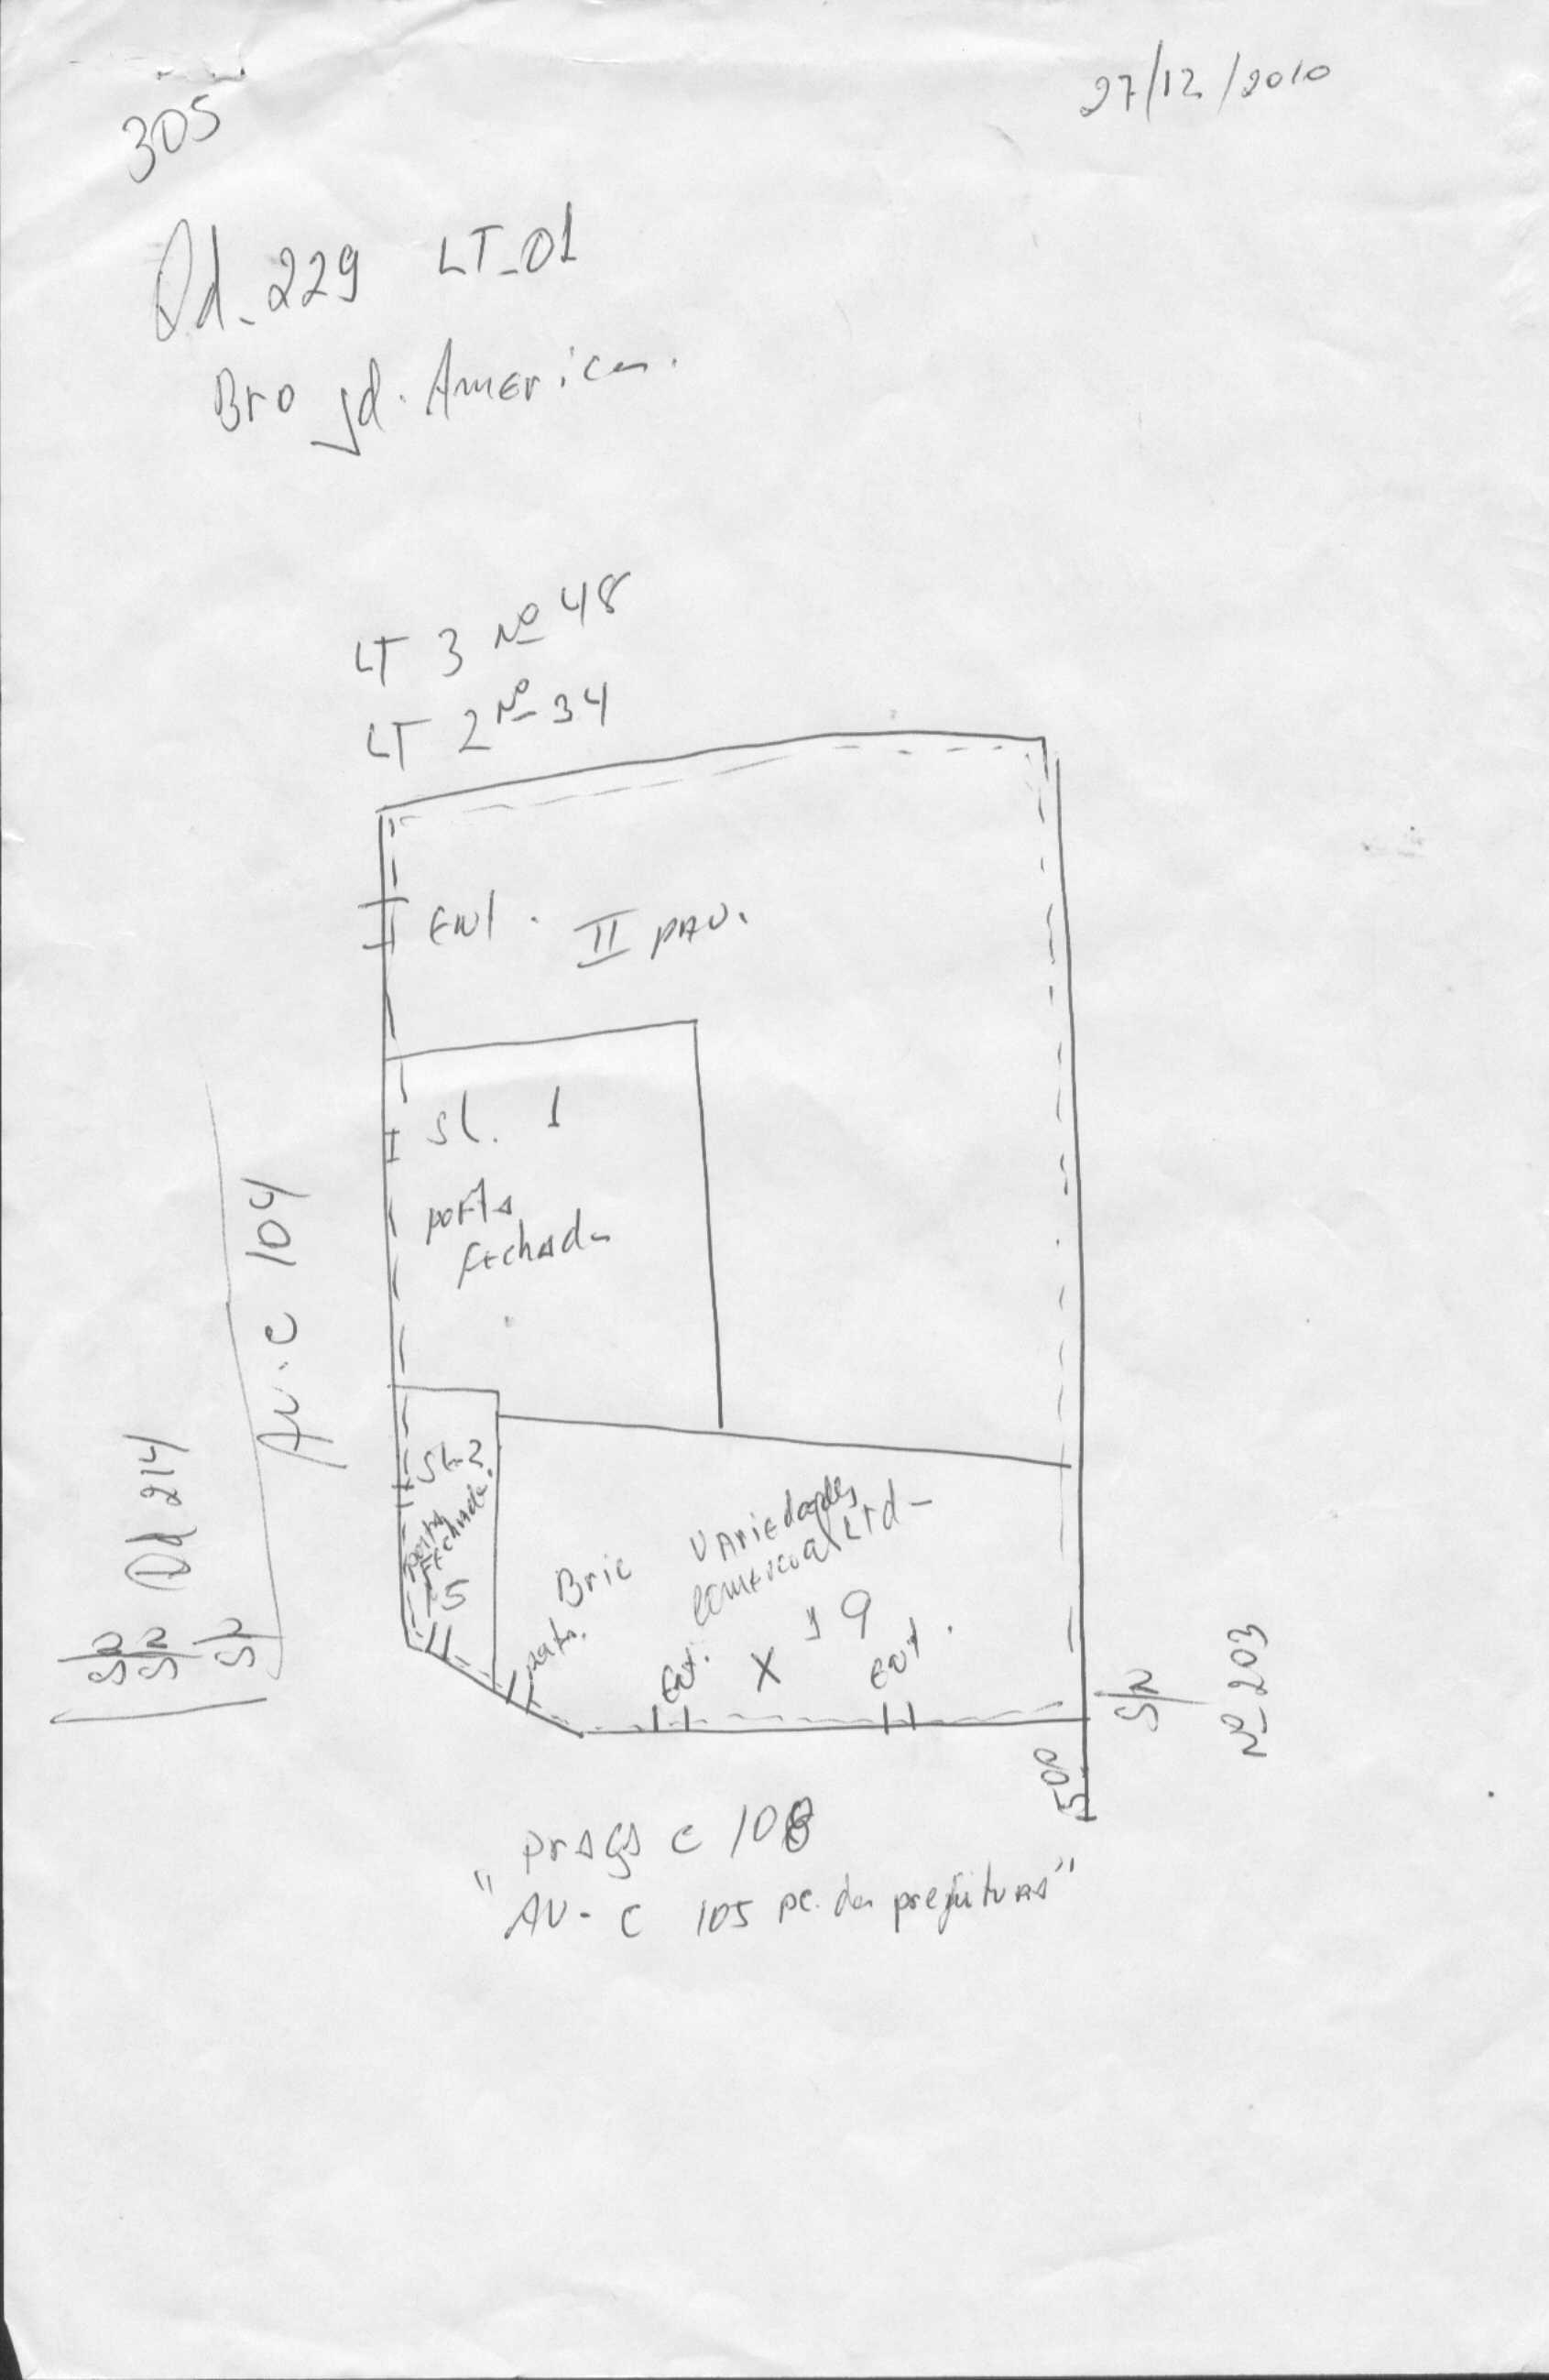 305
27/12/2010
Qd. 229 LT-01
Bro Jd. America.
LT 3 Nº 48
LT 2 Nº 34
Ent. II pav.
SL. 1
porta
fechada
Av. C 104
Qd 214
S/N
S/N
S/N
SL.2
porta
fechada.
5
Bric
Variedades
comercial Ltd
19
Ent.
X
Ent.
S/N
Nº 203
500
Praça C 108
"AV- C 105 pc. da prefeitura"